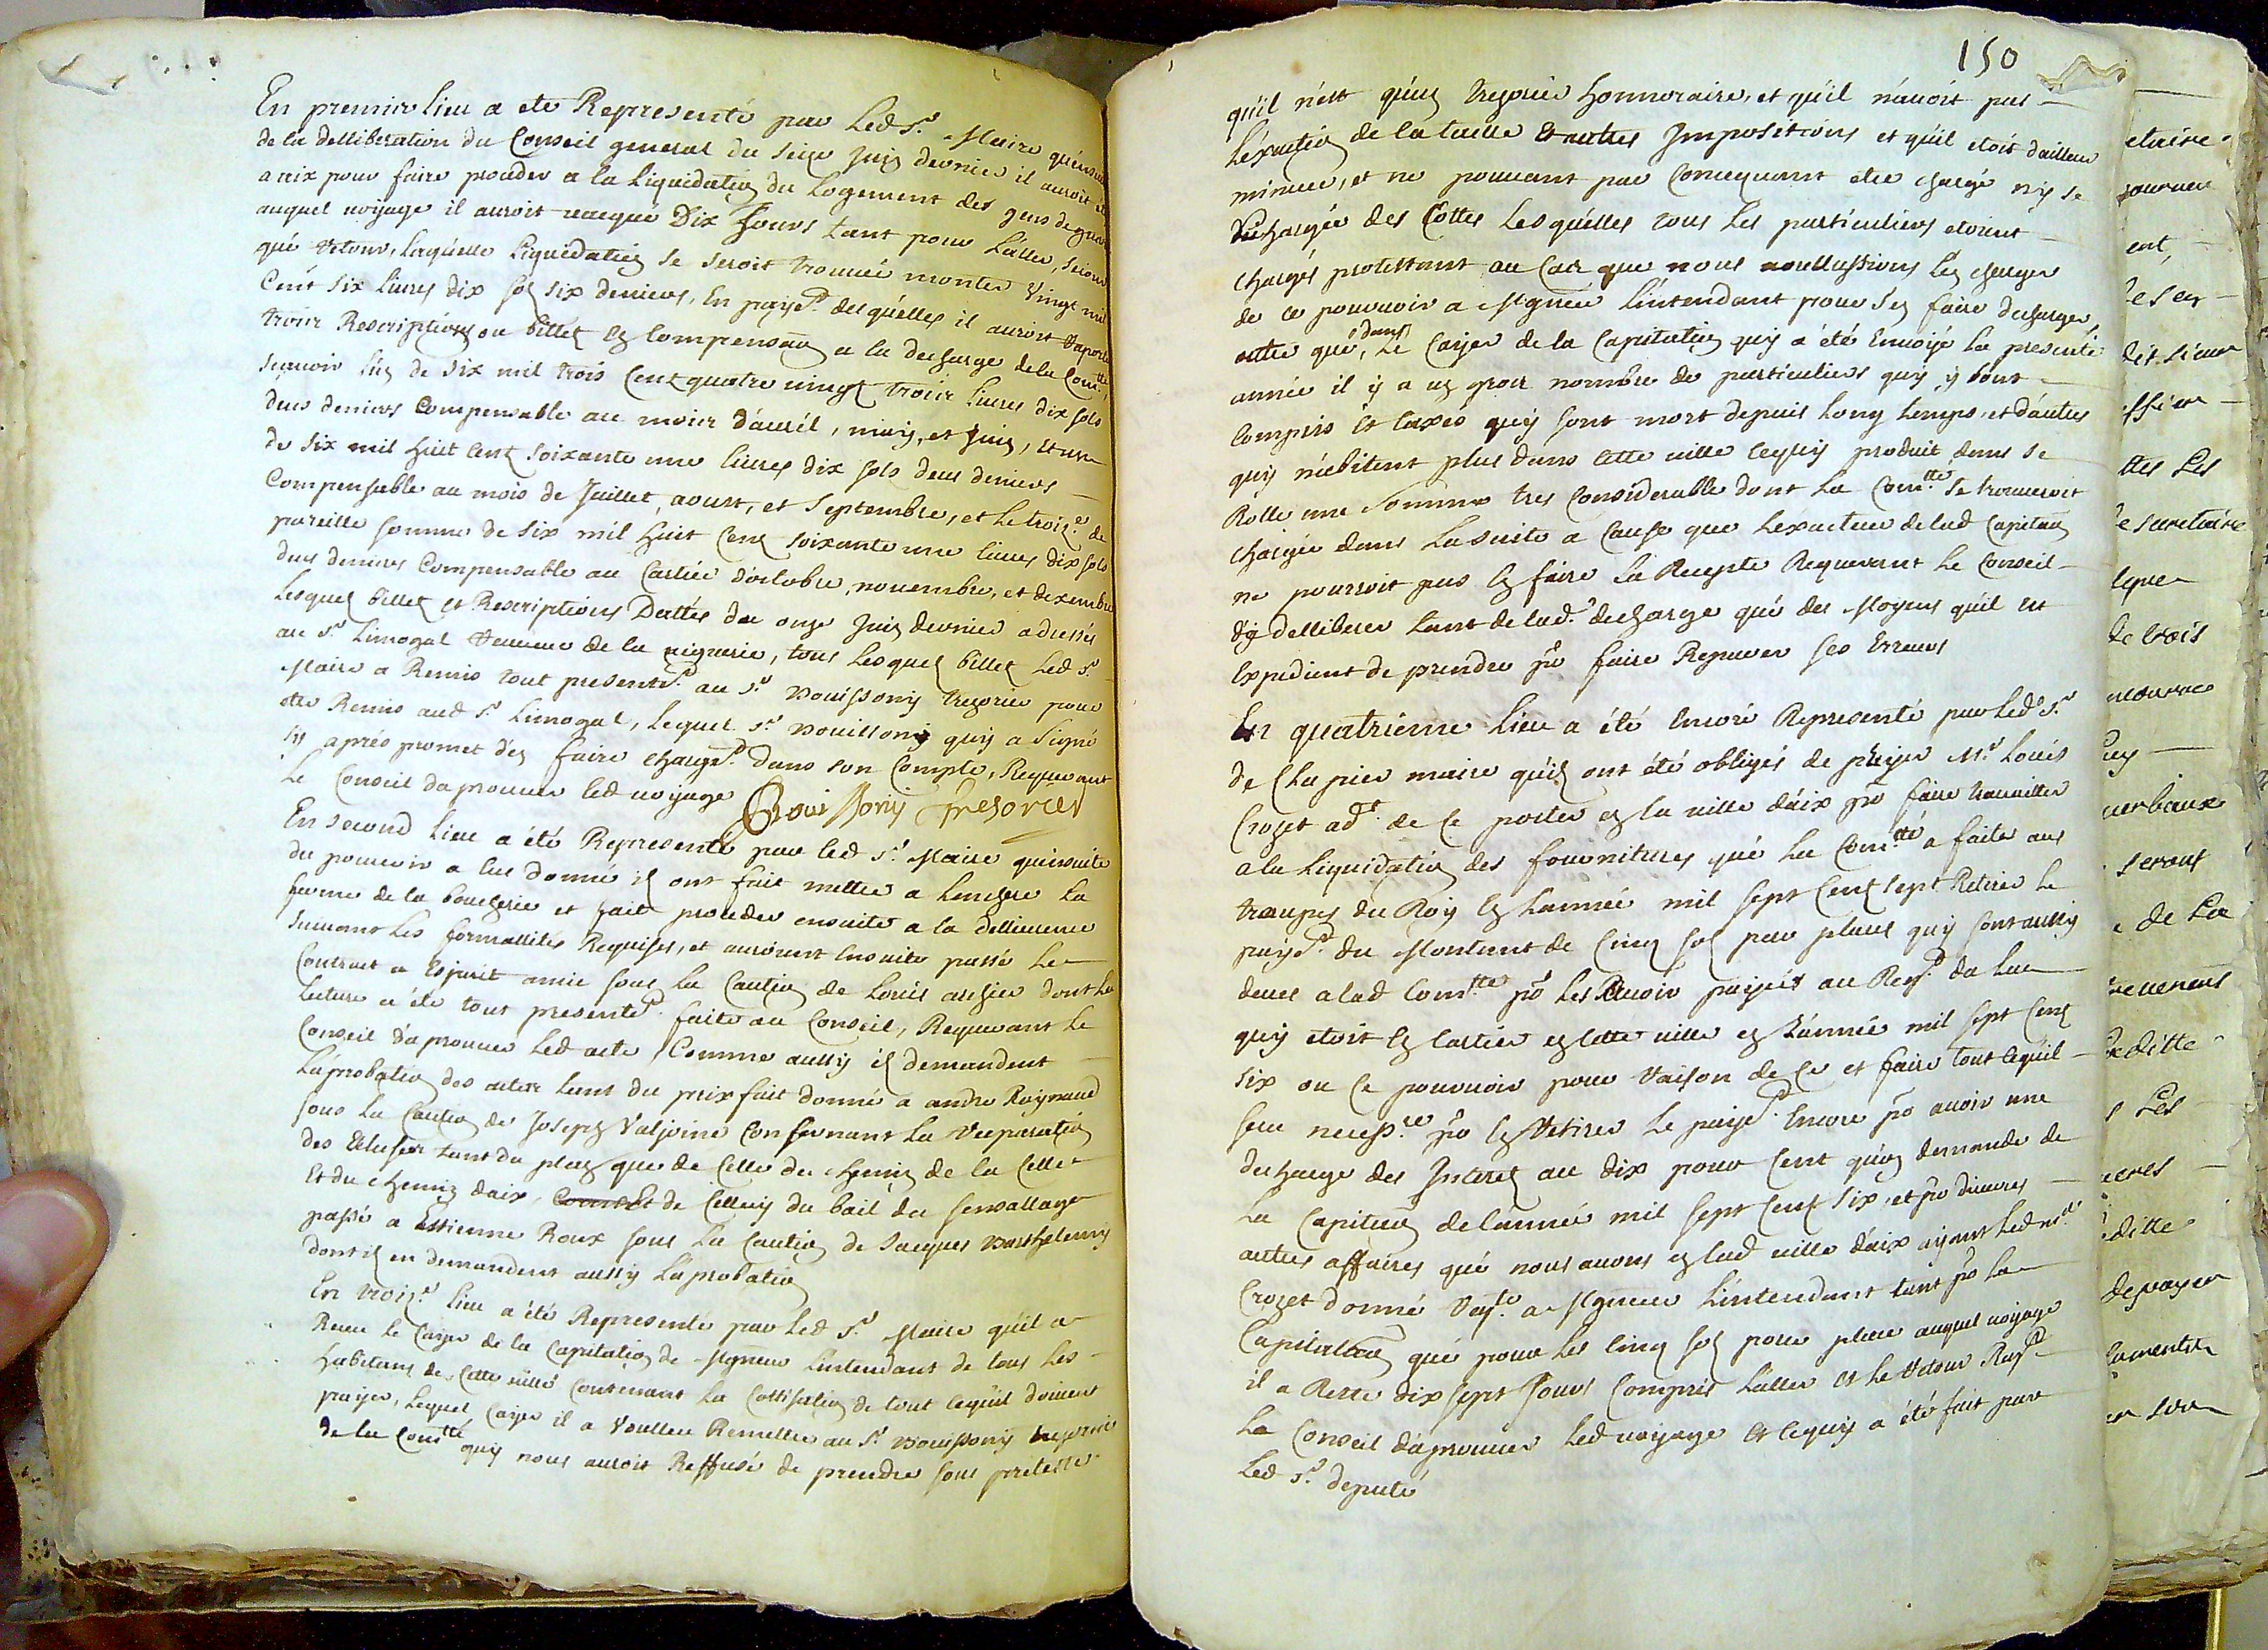 En premier lieu a ete Representé par Led Sr. Maire qu'ensuite
de la delliberation du Conseil general du seize Juin dernier il auroit été
a aix pour faire proceder a la Liquidation du Logement des gens de guerre
auquel voyage il auroit vacqué Dix Jours tant pour L'aller, sejour
que retour, laquelle Liquidation se seroit trouvée monter Vingt mil
Cent six livres dix sols six deniers, En payet. desquelles il auroit raporté
trois Rescriptions ou billets en Compensaon a la decharge de la Comtté,
scavoir L'un de six mil trois Cent quatre vingt trois livres dix sols
deux deniers Compensable au mois d'avril, may, et Juin, et un
de six mil huit Cent soixante une livres dix sols deux deniers
Compensable au mois de Juillet, aoust, et septembre, et le troize. de
pareille somme de six mil huit Cent soixante une livres dix sols
deux deniers Compensable au Cartier d'octobre, novembre, et dexembre
Lesquels billets et Rescriptions Dattés du onze Juin dernier adressés
au Sr. Limogal Receveur de la viguerie, tous lesquels billets Led Sr.
Maire a Remis tout presentet. au Sr. Bouissony tresorier pour
etre Remis aud Sr. Limogal, lequel Sr. Bouissony quy a signé
sy aprés promet d'en faire charget. dans son Compte, Requerant
Le Conseil d'aprouver led voyage Bouissony Tresorier
En second lieu a été Representé par led Sr. Maire quensuite
du pouvoir a lui donné ils ont fait mettre a L'enchere La
ferme de la boucherie et fait proceder ensuite a la dellivrance
suivant Les formallités Requises, et auroient ensuite passé Le
Contract a Esprit amic sous La Caution de Louis augier dont La
lecture a été tout presentet. faite au Conseil, Requerant Le
Conseil d'aprouver Led acte, Comme aussy ils demandent
L'aprobation des actes tant du prix fait donné a andre Raynaud
sous La Caution de Joseph Valjoine Confernant La Reeparation
des Ecluses tant du plan que de Celle du chemin de la Celle
Et du chemin daix, Et de Celluy du bail du
passé a Estienne Roux sous La Caution de Jacques Barthelemy
dont ils en demandent aussy L'aprobation
En troize. lieu a été Representé par Led Sr. Maire qu'il a
Receu le Cayer de la Capitation de Mgneur L'intendant de tous Les
habitans de Cette ville Contenant La Cottisation de tout ce qu'il doivent
payer, Lequel Cayer il a Voulleu Remettre au Sr. Bouissony tresorier
de la Comtté quy nous auroit Reffusé de prendre sous pretexte
150
qu'il n'est qu'un tresorier honnoraire, et qu'il n'avoit pas
L'exaction de la taille Et autres Impositions et qu'il etoit d'ailleurs
mineur, et ne pouvant par Concequant etre chargé ny se
dechargée des Cottes Lesquelles tous Les particuliers etoient
chargés protestant au Cas que nous voullussions L'en charger
de ce pourvoir a Mgneur L'intendant pour s'en faire decharger,
outre que, dans Le Cayer de la Capitation quy a été Envoyé La presente
année il y a un gros nombre de particuliers quy y sont
Compris Et taxés quy sont mort depuis Long temps, et d'autres
quy n'abitent plus dans Cette ville Ce quy produit dans se
Rolle une somme tres Considerable dont La Comtté se trouveroit
chargée dans La suite a Cause que L'exacteur de lad Capitaon
ne pourroit pas En faire La Recepte Requerant Le Conseil
d'y delliberer tant de lad. decharge que des Moyens qu'il Est
Expedient de prendre po. faire Reparer ses Erreurs
En quatrieme Lieu a été Encore Representé par Led. Sr.
de Clapier maire qu'ils ont été obligés de prier Mr. Louis
Crozet adt. de Ce porter en la ville d'aix po. faire travailler
a la Liquidation des fournitures que La Comtté a faite aux
troupes du Roy En L'année mil sept Cent sept Retirer Le
payet. du Montant de Cinq sols par place quy sont aussy
deues a lad Comtté po. Les avoir payés au Regt. du Luc
quy etoit En Cartier en Cette ville en L'année mil sept Cent
six ou Ce pourvoir pour Raison de Ce et faire tout Cequil
sera necesse. po. En Retirer Le payet. Encore po. avoir une
decharge des Interets au dix pour Cent qu'on demande de
La Capitaon de L'année mil sept Cent six, et po. diverses
autres affaires que nous avons en lad ville d'aix ayant Led Mr.
Crozet donné Reqte. a Mgneur L'intendant tant po. La
Capitation que pour Les Cinq sols pour place auquel voyage
il a Resté dix sept Jours Compris L'aller Et Le Retour Reqt.
Le Conseil d'aprouver Led voyage Et Ce quy a été fait par
Led Sr. deputé